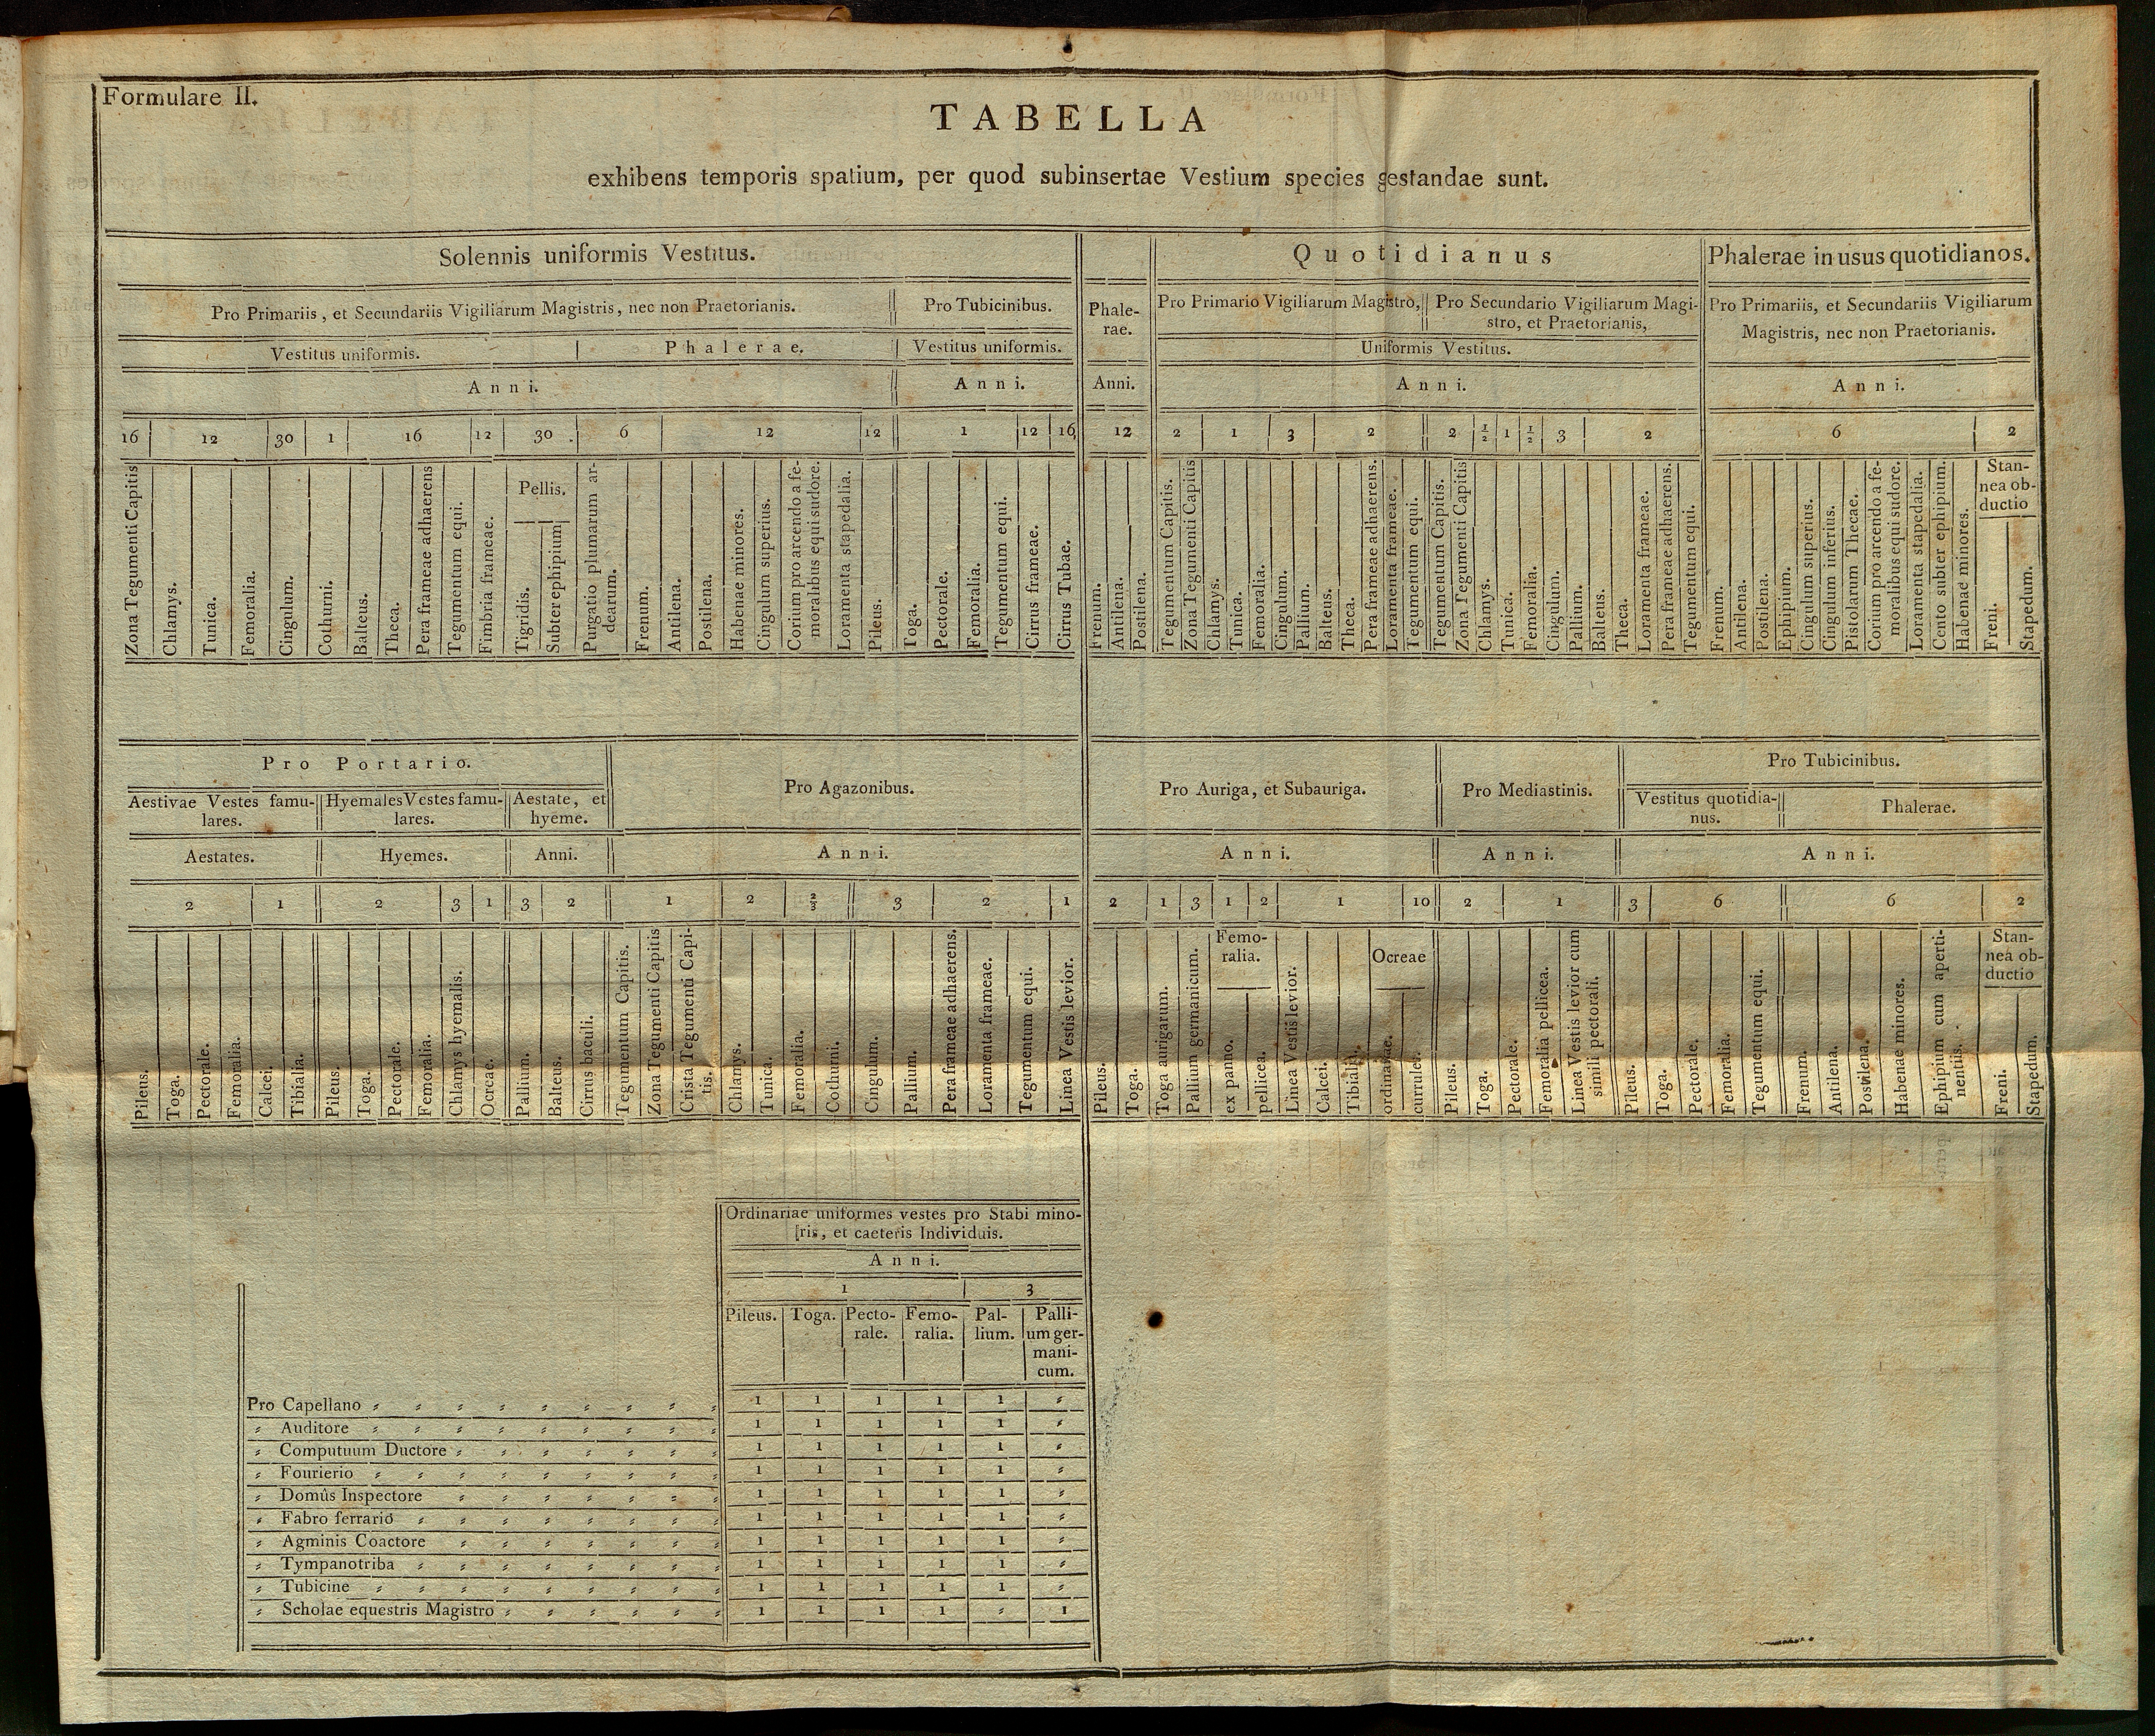 Formulare II.
TABELLA
exhibens temporis spatium, per quod subinsertae Vestium species gestandae sunt.
Solennis uniformis Vestitus.
Pro Primariis, et Secundariis Vigiliarum Magistris, nec non Praetorianis.
Pro Tubicinibus.
Vestitus uniformis.
Phalerae.
Vestitus uniformis.
Anni.
Anni.
16 12 30 1 16 12 30 6 12 12 1 12 16
Zona Tegumenti Capitis
Chlamys.
Tunica.
Femoralia.
Cingulum.
Cothurni.
Balteus.
Theca.
Pera frameae adhaerens
Tegumentum equi.
Fimbria frameae.
Pellis.
Tigridis.
Subter ephipium
Purgatio plumarum ar-
dearum.
Frenum.
Antilena.
Postilena.
Habenae minores.
Cingulum superius.
Corium pro arcendo a fe-
moralibus equi sudore.
Loramenta stapedalia.
Pileus.
Toga.
Pectorale.
Femoralia.
Tegumentum equi.
Cirrus frameae.
Cirrus Tubae.
Phale-
rae.
Anni.
12
Frenum.
Antilena.
Postilena.
Quotidianus
Pro Primario Vigiliarum Magistro,
Pro Secundario Vigiliarum Magi-
stro, et Praetorianis,
Uniformis Vestitus.
Anni.
2 1 3 2 2 1/2 1 1/2 3 2
Tegumentum Capitis.
Zona Tegumenti Capitis
Chlamys.
Tunica.
Femoralia.
Cingulum.
Pallium.
Balteus.
Theca.
Pera frameae adhaerens.
Loramenta frameae.
Tegumentum equi.
Tegumentum Capitis.
Zona Tegumenti Capitis
Chlamys.
Tunica.
Femoralia.
Cingulum.
Pallium.
Balteus.
Theca.
Loramenta frameae.
Pera frameae adhaerens.
Tegumentum equi.
Phalerae in usus quotidianos.
Pro Primariis, et Secundariis Vigiliarum
Magistris, nec non Praetorianis.
Anni.
6 2
Frenum.
Antilena.
Postilena.
Ephipium.
Cingulum superius.
Cingulum inferius.
Pistolarum Thecae.
Corium pro arcendo a fe-
moralibus equi sudore.
Loramenta stapedalia.
Cento subter ephipium.
Habenae minores.
Stan-
nea ob-
ductio
Freni.
Stapedum.
Pro Portario.
Aestivae Vestes famu-
lares.
Hyemales Vestes famu-
lares.
Aestate, et
hyeme.
Aestates.
Hyemes.
Anni.
2 1 2 3 1 3 2
Pileus.
Toga.
Pectorale.
Femoralia.
Calcei.
Tibialia.
Pileus.
Toga.
Pectorale.
Femoralia.
Chlamys hyemalis.
Ocreae.
Pallium.
Balteus.
Cirrus baculi.
Pro Agazonibus.
Anni.
1 2 2/3 3 2 1
Tegumentum Capitis.
Zona Tegumenti Capitis
Crista Tegumenti Capi-
tis.
Chlamys.
Tunica.
Femoralia.
Cothurni.
Cingulum.
Pallium.
Pera frameae adhaerens.
Loramenta frameae.
Tegumentum equi.
Linea Vestis levior.
Pro Auriga, et Subauriga.
Anni.
2 1 3 1 2 1 10
Pileus.
Toga.
Toga aurigarum.
Pallium germanicum.
Femo-
ralia.
ex panno.
pellicea.
Linea Vestis levior.
Calcei.
Tibialia.
Ocreae
ordinariae.
currules.
Pro Mediastinis.
Anni.
2 1
Pileus.
Toga.
Pectorale.
Femoralia pellicea.
Linea Vestis levior cum
simili pectorali.
Pro Tubicinibus.
Vestitus quotidia-
nus.
Phalerae.
Anni.
3 6 6 2
Pileus.
Toga.
Pectorale.
Femoralia.
Tegumentum equi.
Frenum.
Antilena.
Postilena.
Habenae minores.
Ephipium cum aperti-
nentiis.
Stan-
nea ob-
ductio
Freni.
Stapedum.
Ordinariae uniformes vestes pro Stabi mino-
[ris, et caeteris Individuis.
Anni.
1 3
Pileus. Toga. Pecto-
rale. Femo-
ralia. Pal-
lium. Palli-
um ger-
mani-
cum.
Pro Capellano 1 1 1 1 1 〃
〃 Auditore 1 1 1 1 1 〃
〃 Computuum Ductore 1 1 1 1 1 〃
〃 Fourierio 1 1 1 1 1 〃
〃 Domûs Inspectore 1 1 1 1 1 〃
〃 Fabro ferrario 1 1 1 1 1 〃
〃 Agminis Coactore 1 1 1 1 1 〃
〃 Tympanotriba 1 1 1 1 1 〃
〃 Tubicine 1 1 1 1 1 〃
〃 Scholae equestris Magistro 1 1 1 1 〃 1